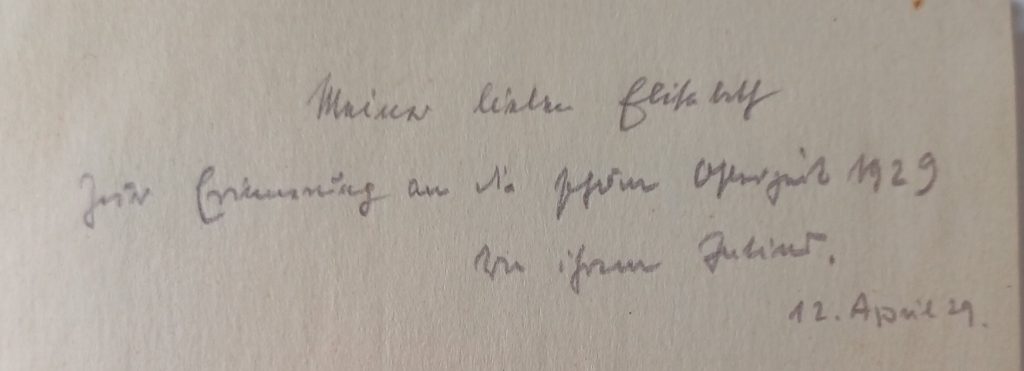 Meiner lieben Elisabeth
Zur Erinnerung an die schöne Osterzeit 1929
Von ihrem Julius.
12. April 29.